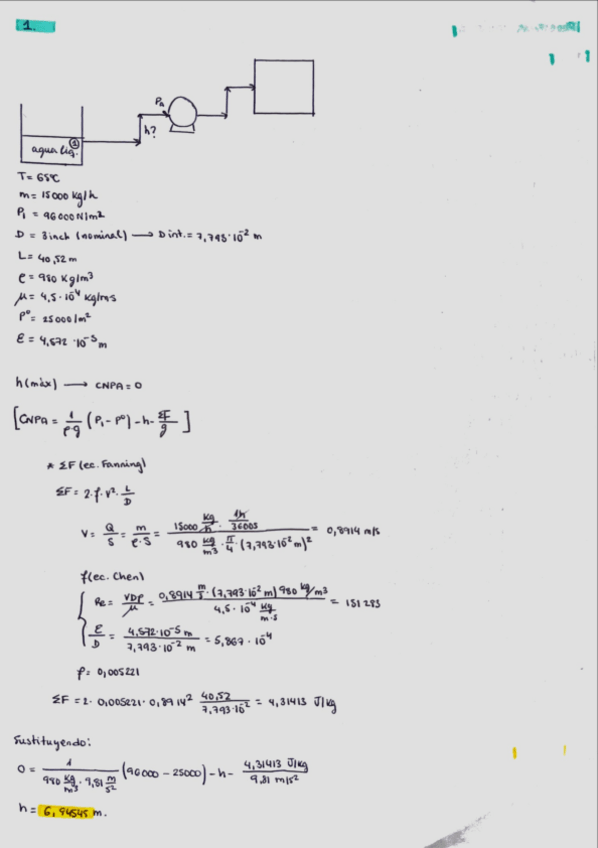 1.
Pa
h?
①
agua liq.
T = 65ºC
m = 15000 kg/h
P₁ = 96000 N/m²
D = 3 inch (nominal) → D int. = 7,793·10⁻² m
L = 40,52 m
ρ = 980 kg/m³
μ = 4,5·10⁻⁴ kg/m·s
Pº = 25000/m²
ε = 4,572·10⁻⁵ m
h(máx) → CNPA = 0
[CNPA = 1/(ρ·g) (P₁ - Pº) - h - ΣF/g]
* ΣF (ec. Fanning)
ΣF = 2·f·v²·L/D
V = Q/S = m/(ρ·S) = (15000 kg/h · 1h/3600s)/(980 kg/m³ · π/4 · (7,793·10⁻² m)²) = 0,8914 m/s
f (ec. Chen)
Re = VDρ/μ = (0,8914 m/s · (7,793·10⁻² m) 980 kg/m³)/(4,5·10⁻⁴ kg/m·s) = 151283
ε/D = (4,572·10⁻⁵ m)/(7,793·10⁻² m) = 5,867·10⁻⁴
f = 0,005221
ΣF = 2·0,005221·0,8914² 40,52/(7,793·10⁻²) = 4,31413 J/kg
Sustituyendo:
0 = 1/(980 kg/m³ · 9,81 m/s²) (96000 - 25000) - h - (4,31413 J/kg)/(9,81 m/s²)
h = 6,94545 m.